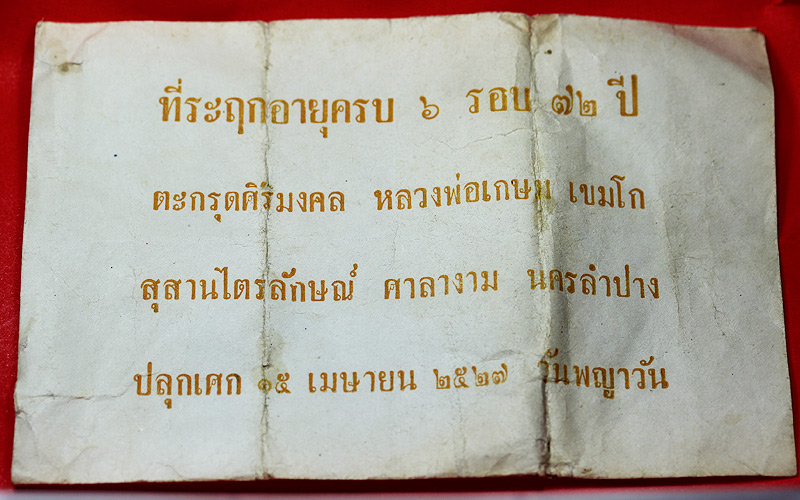 ที่ระฤกอายุครบ ๖ รอบ ๗๒ ปี
ตะกรุดศิริมงคล หลวงพ่อเกษม เขมโก
สุสานไตรลักษณ์ ศาลางาม นครลำปาง
ปลุกเศก ๑๕ เมษายน ๒๕๒๗ วันพญาวัน